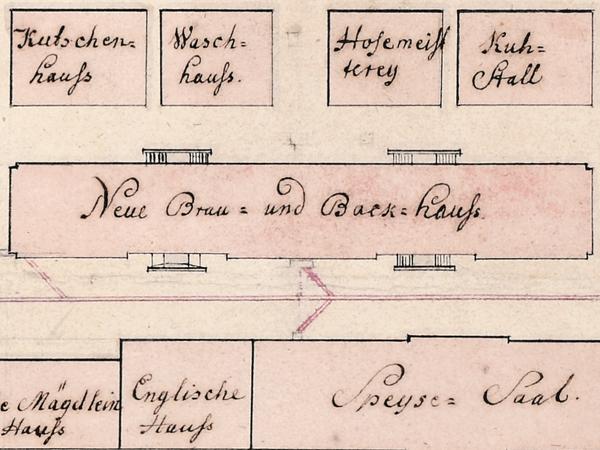 Kutschen=
hauß
Wasch=
hauß.
Hofemeist
terey
Kuh=
Stall
Neue Brau= und Back=hauß.
e Mägdlein
Hauß
Englische
Hauß
Speyse= Saal.